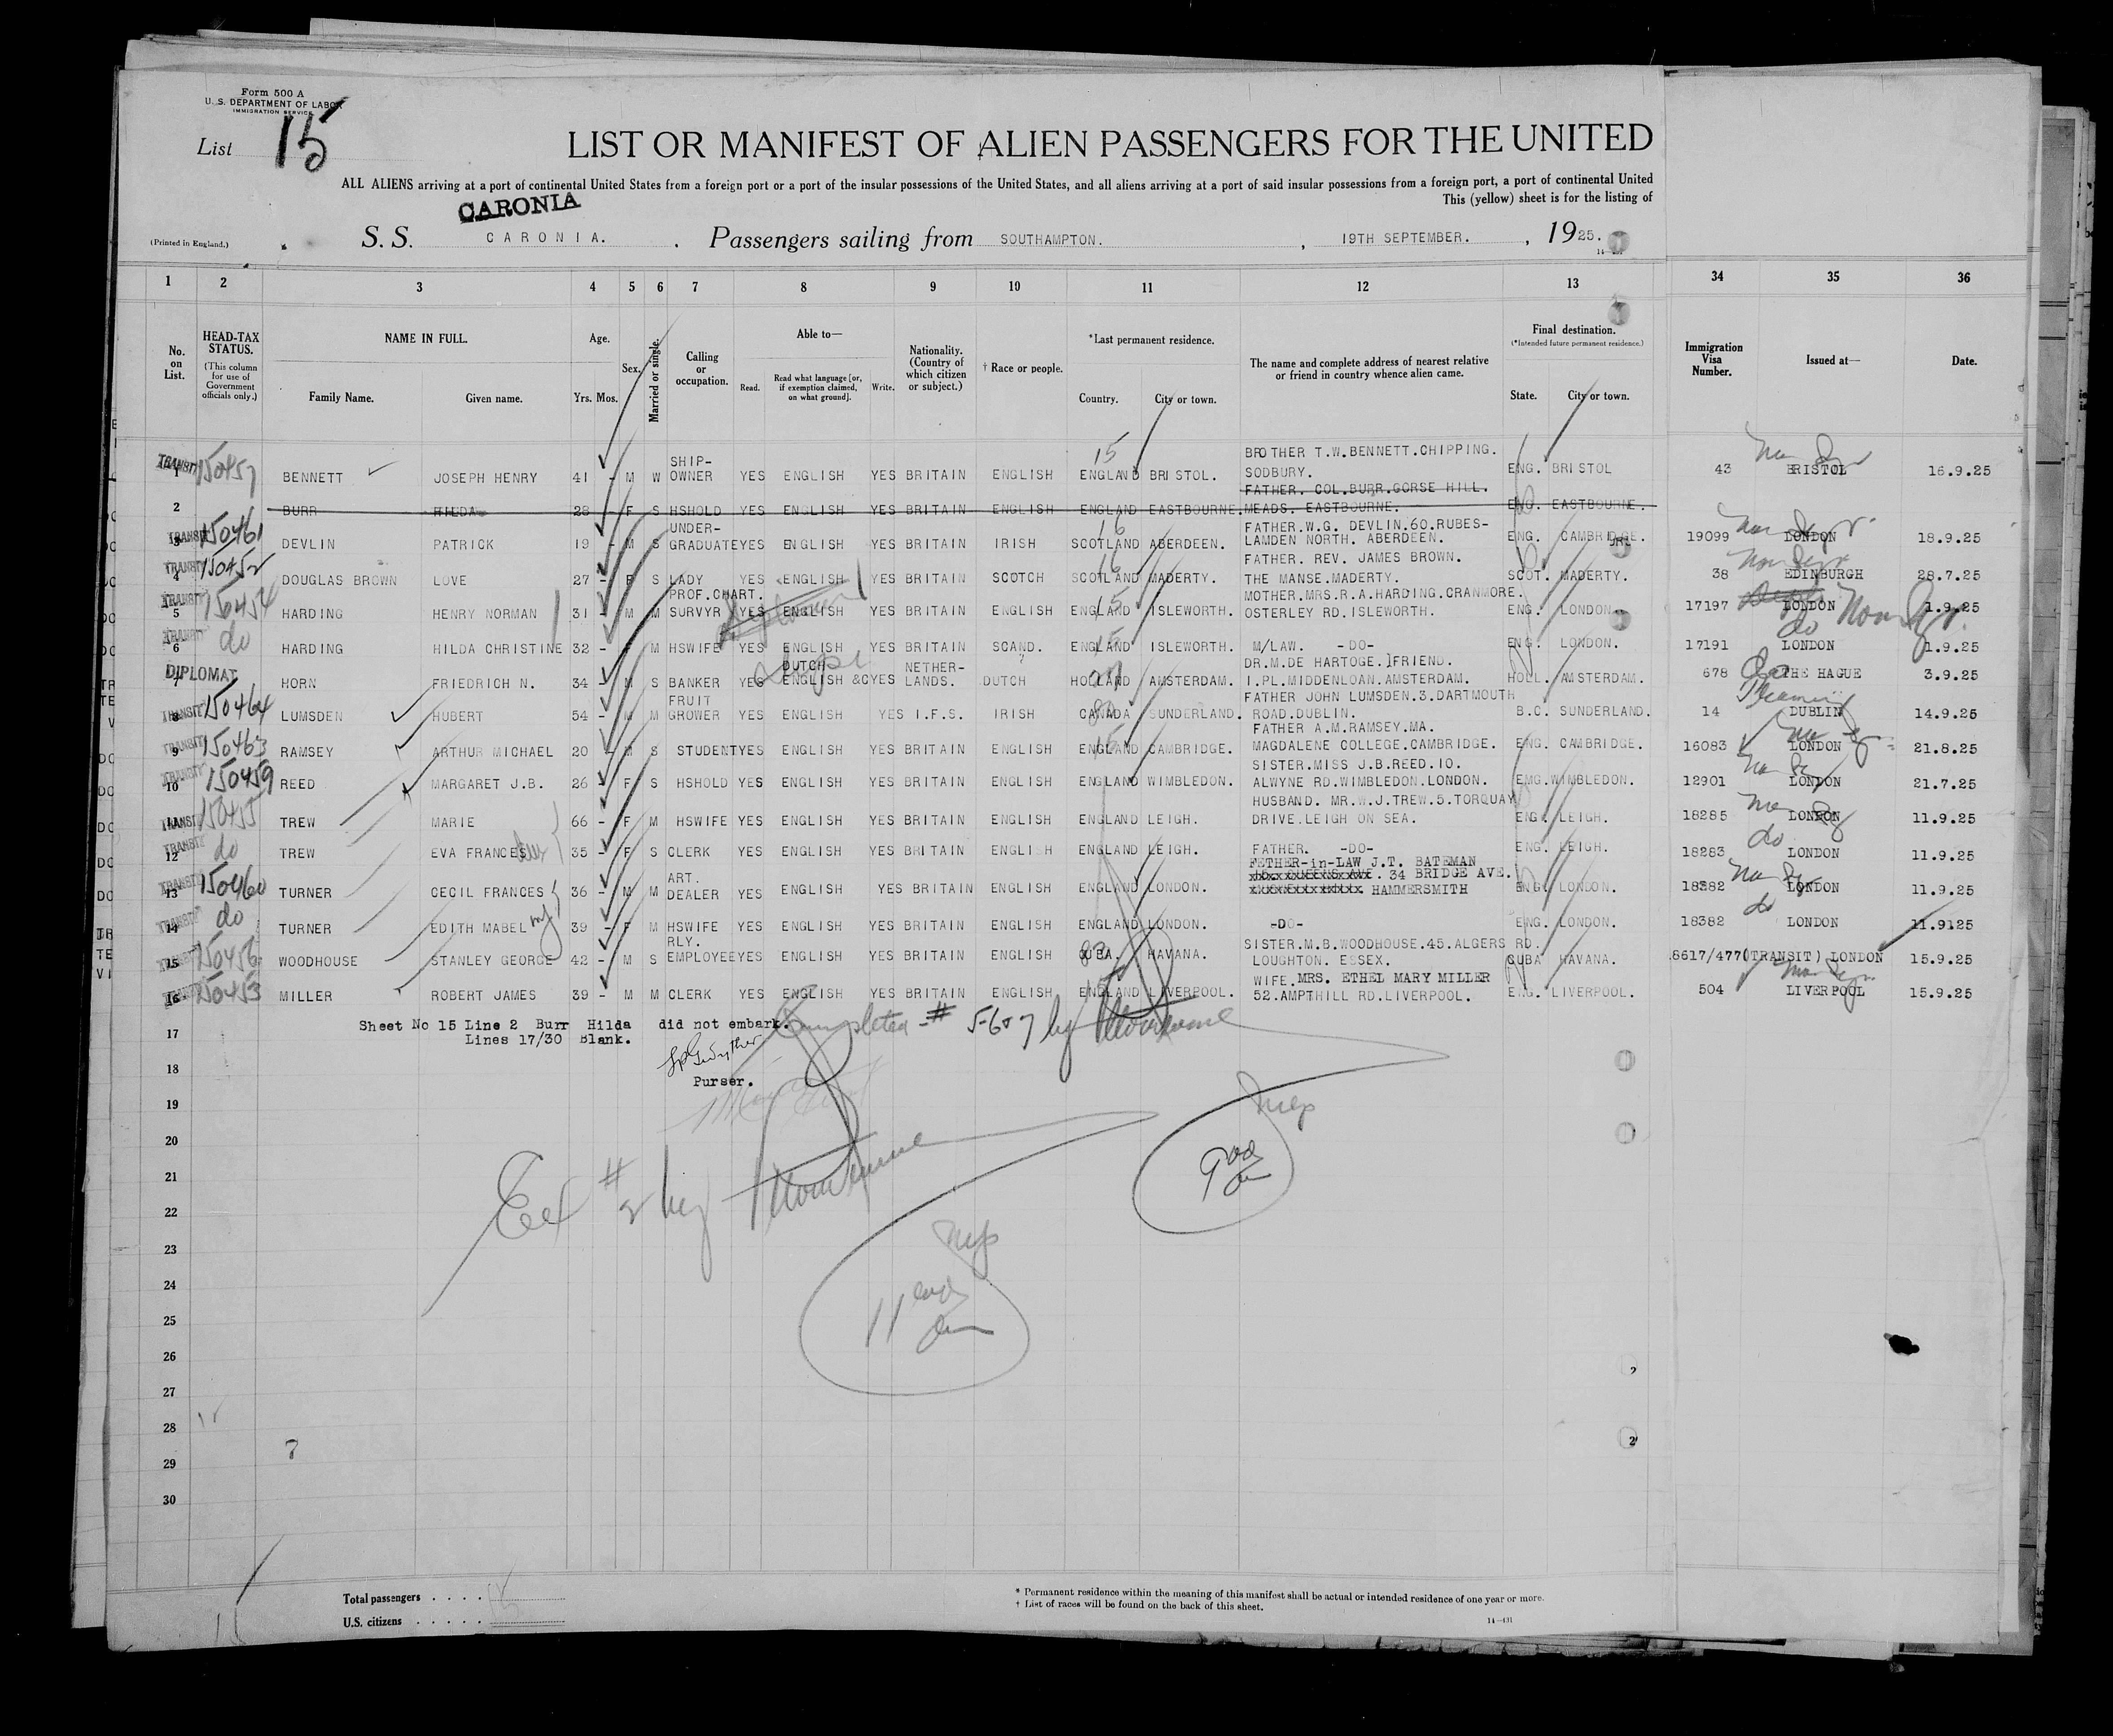 Form 500 A
U. S. DEPARTMENT OF LABOR
IMMIGRATION SERVICE
List 15
LIST OR MANIFEST OF ALIEN PASSENGERS FOR THE UNITED
ALL ALIENS arriving at a port of continental United States from a foreign port or a port of the insular possessions of the United States, and all aliens arriving at a port of said insular possessions from a foreign port, a port of continental United
This (yellow) sheet is for the listing of
CARONIA
(Printed in England.) S. S. CARONIA. Passengers sailing from SOUTHAMPTON. , 19TH SEPTEMBER. , 1925.
1 2 3 4 5 6 7 8 9 10 11 12 13 34 35 36
No. on List.
HEAD-TAX STATUS.
(This column for use of Government officials only.)
NAME IN FULL.
Family Name. Given name.
Age.
Yrs. Mos.
Sex.
Married or single.
Calling or occupation.
Able to—
Read. Read what language [or, if exemption claimed, on what ground]. Write.
Nationality. (Country of which citizen or subject.)
† Race or people.
*Last permanent residence.
Country. City or town.
The name and complete address of nearest relative or friend in country whence alien came.
Final destination.
(*Intended future permanent residence.)
State. City or town.
Immigration Visa Number.
Issued at—
Date.
TRANSIT 1 150457 BENNETT JOSEPH HENRY 41 - M W SHIP-OWNER YES ENGLISH YES BRITAIN ENGLISH 15 ENGLAND BRISTOL. BROTHER T.W.BENNETT.CHIPPING. SODBURY. ENG. BRISTOL 43 BRISTOL 16.9.25
2 BURR HILDA 28 - F S HSHOLD YES ENGLISH YES BRITAIN ENGLISH ENGLAND EASTBOURNE. FATHER. COL.BURR.GORSE HILL. MEADS. EASTBOURNE. ENG. EASTBOURNE.
TRANSIT 3 150461 DEVLIN PATRICK 19 - M S UNDER-GRADUATE YES ENGLISH YES BRITAIN IRISH 16 SCOTLAND ABERDEEN. FATHER.W.G. DEVLIN.60.RUBES-LAMDEN NORTH. ABERDEEN. ENG. CAMBRIDGE. 19099 LONDON 18.9.25
TRANSIT 4 150452 DOUGLAS BROWN LOVE 27 - F S LADY YES ENGLISH YES BRITAIN SCOTCH 16 SCOTLAND MADERTY. FATHER. REV. JAMES BROWN. THE MANSE.MADERTY. SCOT. MADERTY. 38 EDINBURGH 28.7.25
TRANSIT 5 150454 HARDING HENRY NORMAN 31 - M M PROF.CHART. SURVYR YES ENGLISH YES BRITAIN ENGLISH 15 ENGLAND ISLEWORTH. MOTHER.MRS.R.A.HARDING.CRANMORE. OSTERLEY RD.ISLEWORTH. ENG. LONDON. 17197 LONDON 1.9.25
TRANSIT 6 do HARDING HILDA CHRISTINE 32 - F M HSWIFE YES ENGLISH YES BRITAIN SCAND. 15 ENGLAND ISLEWORTH. M/LAW. -DO- ENG. LONDON. 17191 do LONDON 1.9.25
DIPLOMAT 7 HORN FRIEDRICH N. 34 - M S BANKER YES DUTCH ENGLISH &C YES NETHER-LANDS. DUTCH HOLLAND AMSTERDAM. DR.M.DE HARTOGE.]FRIEND. I.PL.MIDDENLOAN.AMSTERDAM. HOLL. AMSTERDAM. 678 THE HAGUE 3.9.25
TRANSIT 8 150464 LUMSDEN HUBERT 54 - M M FRUIT GROWER YES ENGLISH YES I.F.S. IRISH CANADA SUNDERLAND. FATHER JOHN LUMSDEN.3.DARTMOUTH ROAD.DUBLIN. B.C. SUNDERLAND. 14 DUBLIN 14.9.25
TRANSIT 9 150463 RAMSEY ARTHUR MICHAEL 20 - M S STUDENT YES ENGLISH YES BRITAIN ENGLISH 15 ENGLAND CAMBRIDGE. FATHER A.M.RAMSEY.MA. MAGDALENE COLLEGE.CAMBRIDGE. ENG. CAMBRIDGE. 16083 LONDON 21.8.25
TRANSIT 10 150459 REED MARGARET J.B. 26 - F S HSHOLD YES ENGLISH YES BRITAIN ENGLISH ENGLAND WIMBLEDON. SISTER.MISS J.B.REED.10. ALWYNE RD.WIMBLEDON.LONDON. EMG.WIMBLEDON. 12901 LONDON 21.7.25
TRANSIT 11 150455 TREW MARIE 66 - F M HSWIFE YES ENGLISH YES BRITAIN ENGLISH ENGLAND LEIGH. HUSBAND. MR.W.J.TREW.5.TORQUAY DRIVE.LEIGH ON SEA. ENG. LEIGH. 18285 LONDON 11.9.25
TRANSIT 12 do TREW EVA FRANCES 35 - F S CLERK YES ENGLISH YES BRITAIN ENGLISH ENGLAND LEIGH. FATHER. -DO- ENG. LEIGH. 18283 do LONDON 11.9.25
TRANSIT 13 150460 TURNER CECIL FRANCES 36 - M M ART. DEALER YES ENGLISH YES BRITAIN ENGLISH ENGLAND LONDON. FETHER-in-LAW J.T. BATEMAN 34 BRIDGE AVE. HAMMERSMITH ENG. LONDON. 18382 LONDON 11.9.25
TRANSIT 14 do TURNER EDITH MABEL 39 - F M HSWIFE YES ENGLISH YES BRITAIN ENGLISH ENGLAND LONDON. -DO- ENG. LONDON. 18382 do LONDON 11.9125
TRANSIT 15 150456 WOODHOUSE STANLEY GEORGE 42 - M S RLY. EMPLOYEE YES ENGLISH YES BRITAIN ENGLISH CUBA. HAVANA. SISTER.M.B.WOODHOUSE.45.ALGERS RD. LOUGHTON. ESSEX. CUBA HAVANA. 8617/477(TRANSIT) LONDON 15.9.25
16 150453 MILLER ROBERT JAMES 39 - M M CLERK YES ENGLISH YES BRITAIN ENGLISH 15 ENGLAND LIVERPOOL. WIFE.MRS. ETHEL MARY MILLER 52.AMPTHILL RD.LIVERPOOL. ENG. LIVERPOOL. 504 LIVERPOOL 15.9.25
Sheet No 15 Line 2 Burr Hilda did not embark.
Completed - # 5-6&7 by
17 Lines 17/30 Blank.
18 Purser.
19
20
21
22
23
24
25
26
27
28
29
30
Total passengers . . . . 15
U.S. citizens . . . . .
* Permanent residence within the meaning of this manifest shall be actual or intended residence of one year or more.
† List of races will be found on the back of this sheet.
14—431